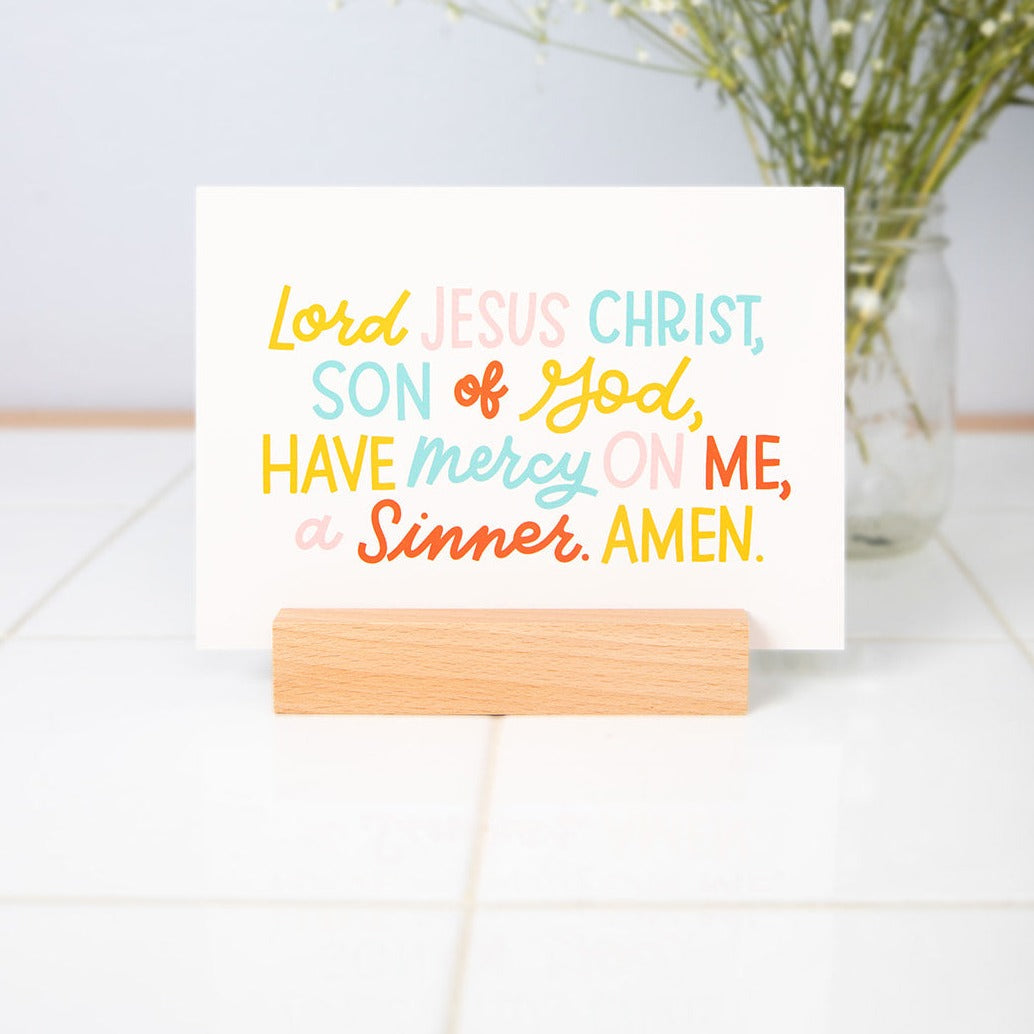 Lord JESUS CHRIST,
SON of God,
HAVE mercy ON ME,
a Sinner. AMEN.